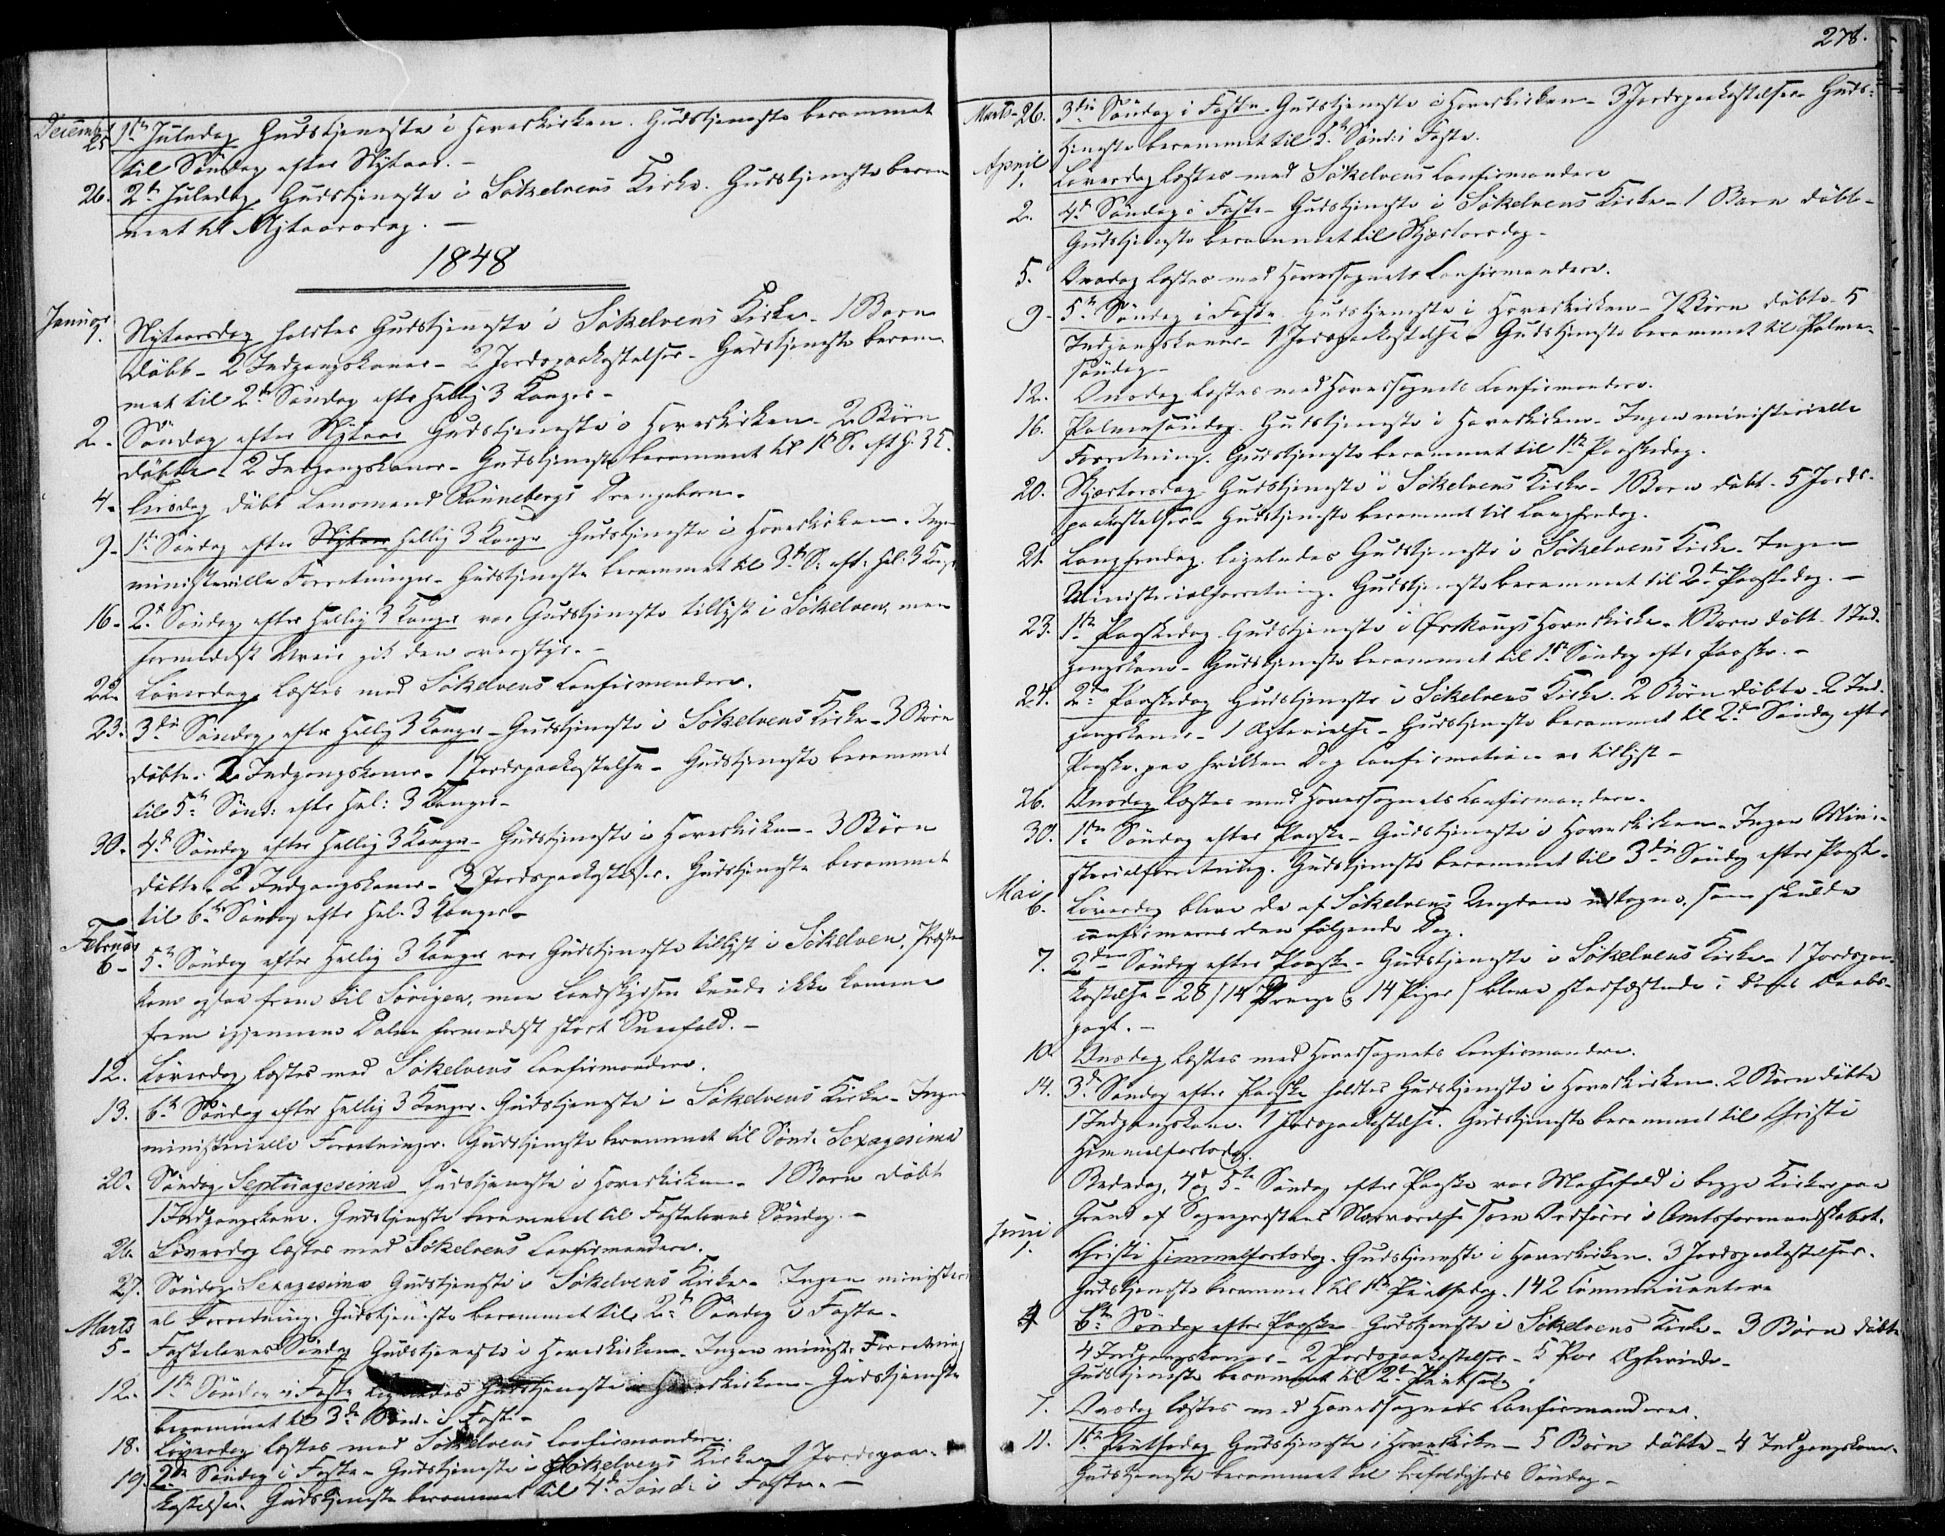 Decembr 25 1ste Juledag Gudstjeneste i Hovedkirken. Gudstjeneste berammet
til Søndag efter Nytaar. –
26. 2den Juledag Gudstjeneste i Søkelvens Kirke. Gudstjeneste beram-
met til Nytaarsdag. –
1848
Januar 1. Nytaarsdag holdtes Gudstjeneste i Søkelvens Kirke – 1 Barn
døbt – 2 Indgangskoner – 2 Jordspaakastelser – Gudstjeneste beram-
met til 2den Søndag efter Hellig 3 Konger –
2. Søndag efter Nytaar Gudstjeneste i Hovedkirken – 2 Børn
døbte – 2 Indgangskoner – Gudstjeneste berammet til 1ste S. eft H. 3 K.
4. Tirsdag døbt Lensmand Rønnebergs Drengebarn.
9. 1ste Søndag efter Nytaar Hellig 3 Konger Gudstjeneste i Hovedkirken. Ingen
ministerielle Forretninger – Gudstjeneste berammet til 3die S. eft: Hel: 3 Kong
16. 2den Søndag efter Hellig 3 Konger var Gudstjeneste tillyst i Søkelven, men
formedelst Uveir gik den overstyr. –
22. Løverdag læstes med Søkelvens Confirmander.
23. 3die Søndag efter Hellig 3 Konger – Gudstjeneste i Søkelvens Kirke – 3 Børn
døbte. 2 Indgangskoner – 1 Jordspaakastelse – Gudstjeneste berammet
til 5te Sønd: efter Hel: 3 Konger –
30. 4de Søndag efter Hellig 3 Konger – Gudstjeneste i Hovedkirken – 3 Børn
døbte – 2 Indgangskoner – 3 Jordspaakastelser. Gudstjeneste berammet
til 6te Søndag efter Hel. 3 Konger –
Februar 6. 5te Søndag efter Hellig 3 Konger var Gudstjeneste tillyst i Søkelven, Præsten
kom ogsaa frem til Sørigen, men Landskydsen kunde ikke komme
frem igjennem Dalen formedelst stort Sneefald. –
12. Løverdag læstes med Søkelvens Confirmander.
13. 6te Søndag efter Hellig 3 Konger. Gudstjeneste i Søkelvens Kirke – Ingen
ministerielle Forretninger. Gudstjeneste berammet til Sønd: Sexagesima
20. Søndag Septuagesima Gudstjeneste i Hovedkirken – 1 Barn døbt
1 Indgangskone. Gudstjeneste berammet til Fastelavns Søndag. –
26. Løverdag læstes med Søkelvens Confirmander.
27. Søndag Sexagesima Gudstjeneste i Søkelvens Kirke – Ingen ministeri-
el Forretning. Gudstjeneste berammet til 2den Søndag i Faste.
Marts 5. Fastelavns Søndag Gudstjeneste i Hovedkirken. Ingen minist: Forretning
12. 1ste Søndag i Faste Gudstjeneste i Hovedkirken – Gudstjeneste
berammet til 3die Sønd: i Faste –
18. Løverdag læstes med Søkelvens Confirmander.
19. 2den Søndag i Faste – Gudstjeneste i Søkelvens Kirke 1 Jordspaa-
kastelse. Gudstjeneste berammet til 4de Sønd: i Faste. –
278.
Marts 26. 3die Søndag i Faste. Gudstjeneste i Hovedkirken – 3 Jordspaakastelser Guds-
tjeneste berammet til 5te Sønd: i Faste.
April 1. Løverdag læstes med Søkelvens Confirmander
2. 4de Søndag i Faste – Gudstjeneste i Søkelvens Kirke – 1 Barn døbt –
Gudstjeneste berammet til Skjærtorsdag –
5. Onsdag læstes med Hovedsognets Confirmander.
9. 5te Søndag i Faste Gudstjeneste i Hovedkirken – 7 Børn døbte – 5
Indgangskoner – 1 Jordspaakastelse – Gudstjeneste berammet til Palme-
søndag –
12. Onsdag læstes med Hovedsognets Confirmander.
16. Palmesøndag. Gudstjeneste i Hovedkirken – Ingen ministerielle
Forretning. Gudstjeneste berammet til 1ste Paaskedag.
20. Skjærtorsdag Gudstjeneste i Søkelvens Kirke – 1 Barn døbt – 5 Jords-
paakastelser – Gudstjeneste berammet til Langfredag.
21. Langfredag. ligeledes Gudstjeneste i Søkelvens Kirke – Ingen
Ministerialforretning. Gudstjeneste berammet til 2den Paaskedag. –
23. 1ste Paaskedag Gudstjeneste i Ørskougs Hovedkirke – 1 Barn døbt – 1 Ind-
gangskone – Gudstjeneste berammet til 1ste Søndag efter Paaske. –
24. 2den Paaskedag Gudstjeneste i Søkelvens Kirke. 2 Børn døbte – 2 Ind-
gangskoner – 1 Ægtevielse – Gudstjeneste berammet til 2den Søndag efter
Paaske, paa hvilken Dag Confirmation er tillyst –
26. Onsdag læstes med Hovedsognets Confirmander.
30. 1ste Søndag efter Paaske – Gudstjeneste i Hovedkirken – Ingen Mini-
sterialforretning. Gudstjeneste berammet til 3die Søndag efter Paaske.
Mai 6. Løverdag bleve de af Søkelvens Ungdom udtagne, som skulde
confirmeres den følgende Dag.
7. 2den Søndag efter Paaske – Gudstjeneste i Søkelvens Kirke – 1 Jordspaa-
kastelse – 28 / 14 Drenge & 14 Piger / bleve stadfæstede i deres Daabs-
pagt. –
10. Onsdag læstes med Hovedsognets Confirmander.
14. 3die Søndag efter Paaske holdtes Gudstjeneste i Hovedkirken. 2 Børn døbte
1 Indgangskone. 1 Jordspaakastelse. Gudstjeneste berammet til Christi
Himmelfartsdag.
Bededag, 4de og 5te Søndag efter Paaske var Messefald i begge Kirker paa
Grund af Sognepræstens Nærværelse som Ordfører i Amtsformandskabet.
Juni 1. Christi Himmelfartsdag. Gudstjeneste i Hovedkirken. 3 Jordspaakastelser.
Gudstjeneste berammet til 1ste Pintsedag. 142 Communicantere
4 6te Søndag efter Paaske Gudstjeneste i Søkelvens Kirke – 3 Børn døbte
4 Indgangskoner – 2 Jordspaakastelser – Par Ægteviede –
Gudstjeneste berammet til 2den Pintsedag
7. Onsdag læstes med Hovedsognets Confirmander.
11. 1ste Pintsedag Gudstjeneste i Hovedkirken – 5 Børn døbte – 4 Indgangskoner
Gudstjeneste berammet til Trefoldigheds Søndag –